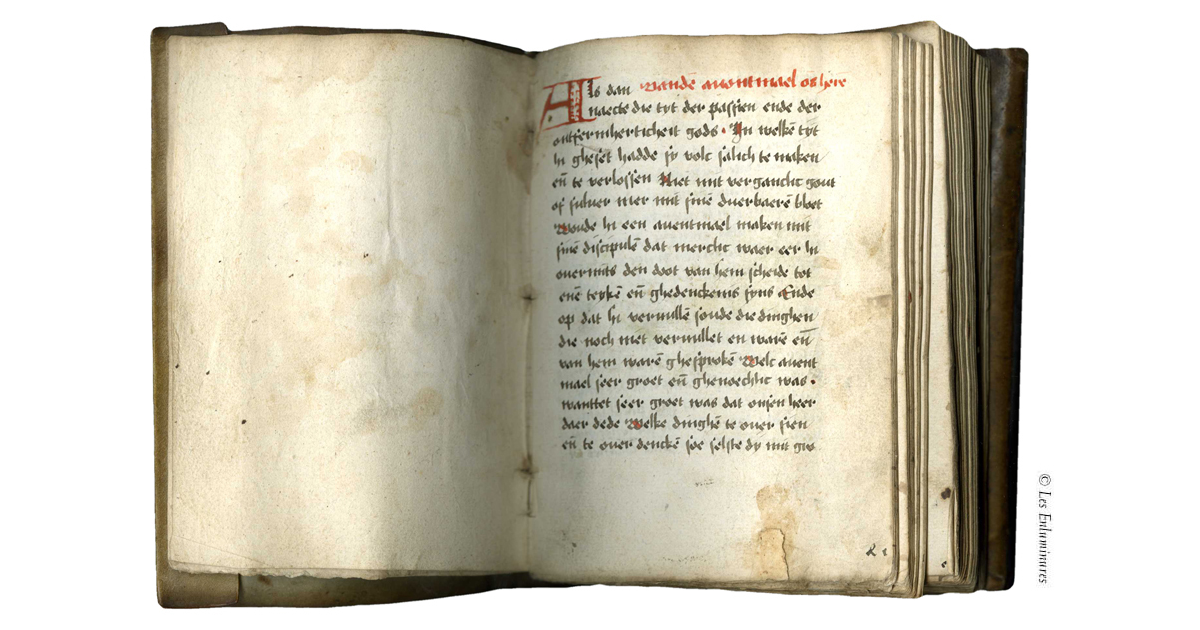 Als dan Vandē auontmael ōs here
naecte die tyt der passien ende der
ontfermherticheit gods · In welkē tyt
hi gheset hadde sy volc salich te maken
eñ te verlossen Niet mit vergancht gout
of suluer mer mit sinē duerbaerē bloet
Woude hi een auentmael maken mit
sinē discipulē dat merchc waer eer hi
ouermits den doot van hem scheide tot
enē teykē eñ ghedenckenis syns Ende
op dat hi veruullē soude die dinghen
die noch niet veruullet en warē eñ
van hem warē ghesprokē Welc auent
mael seer groet eñ ghenoechlic was ·
wanttet seer groet was dat onsen heer
daer dede Welke dinghē te ouer sien
eñ te ouer denckē soe selste dy mit gro
© Les Enluminures